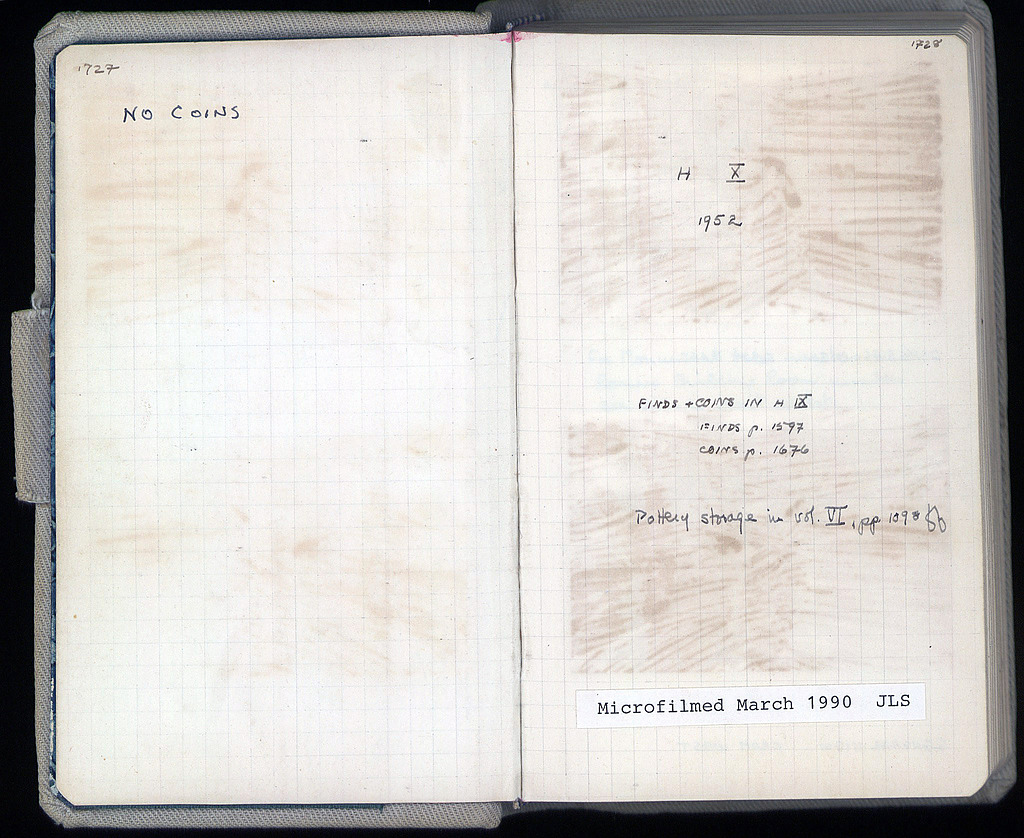 1727
NO COINS
1728
H X
1952
FINDS + COINS IN H IX
FINDS p. 1597
COINS p. 1676
Pottery storage in vol. VI, pp 1098 ff
Microfilmed March 1990 JLS